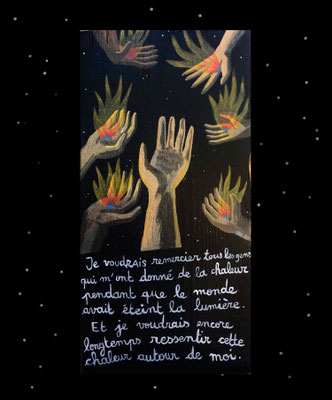 Je voudrais remercier tous les gens
qui m'ont donné de la chaleur
pendant que le monde
avait éteint la lumière.
Et je voudrais encore
longtemps ressentir cette
chaleur autour de moi.